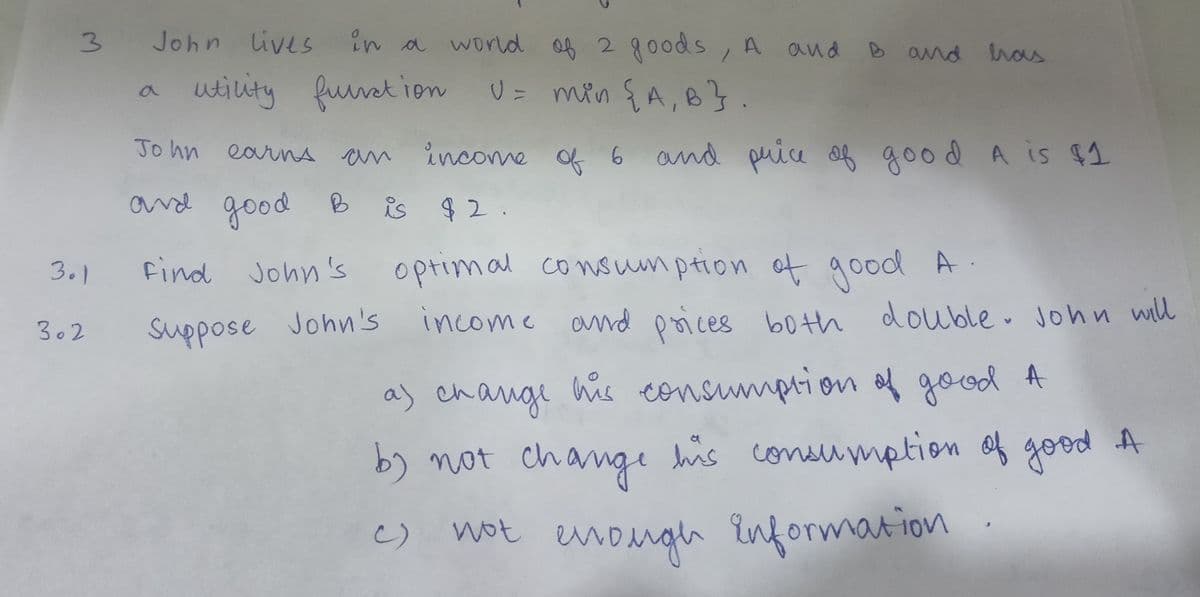 3 John lives in a world of 2 goods, A and B and has
a utility function U = min {A, B}.
John earns an income of 6 and price of good A is $1
and good B is $2.
3.1 Find John's optimal consumption of good A.
3.2 Suppose John's income and prices both double. John will
a) change his consumption of good A
b) not change his consumption of good A
c) not enough information.